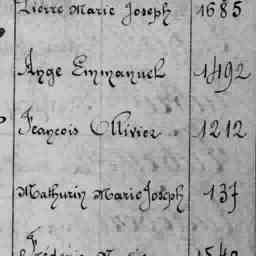 Pierre Marie Joseph 1685
Ange Emmanuel 1492
François Ollivier 1212
Mathurin Marie Joseph 137